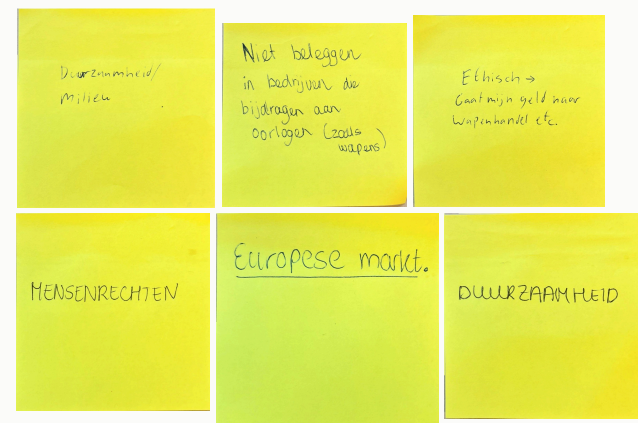 Duurzaamheid/
Milieu
Niet beleggen
in bedrijven die
bijdragen aan
oorlogen (zoals
wapens)
Ethisch →
Gaat mijn geld naar
Wapenhandel etc.
MENSENRECHTEN
Europese markt.
DUURZAAMHEID